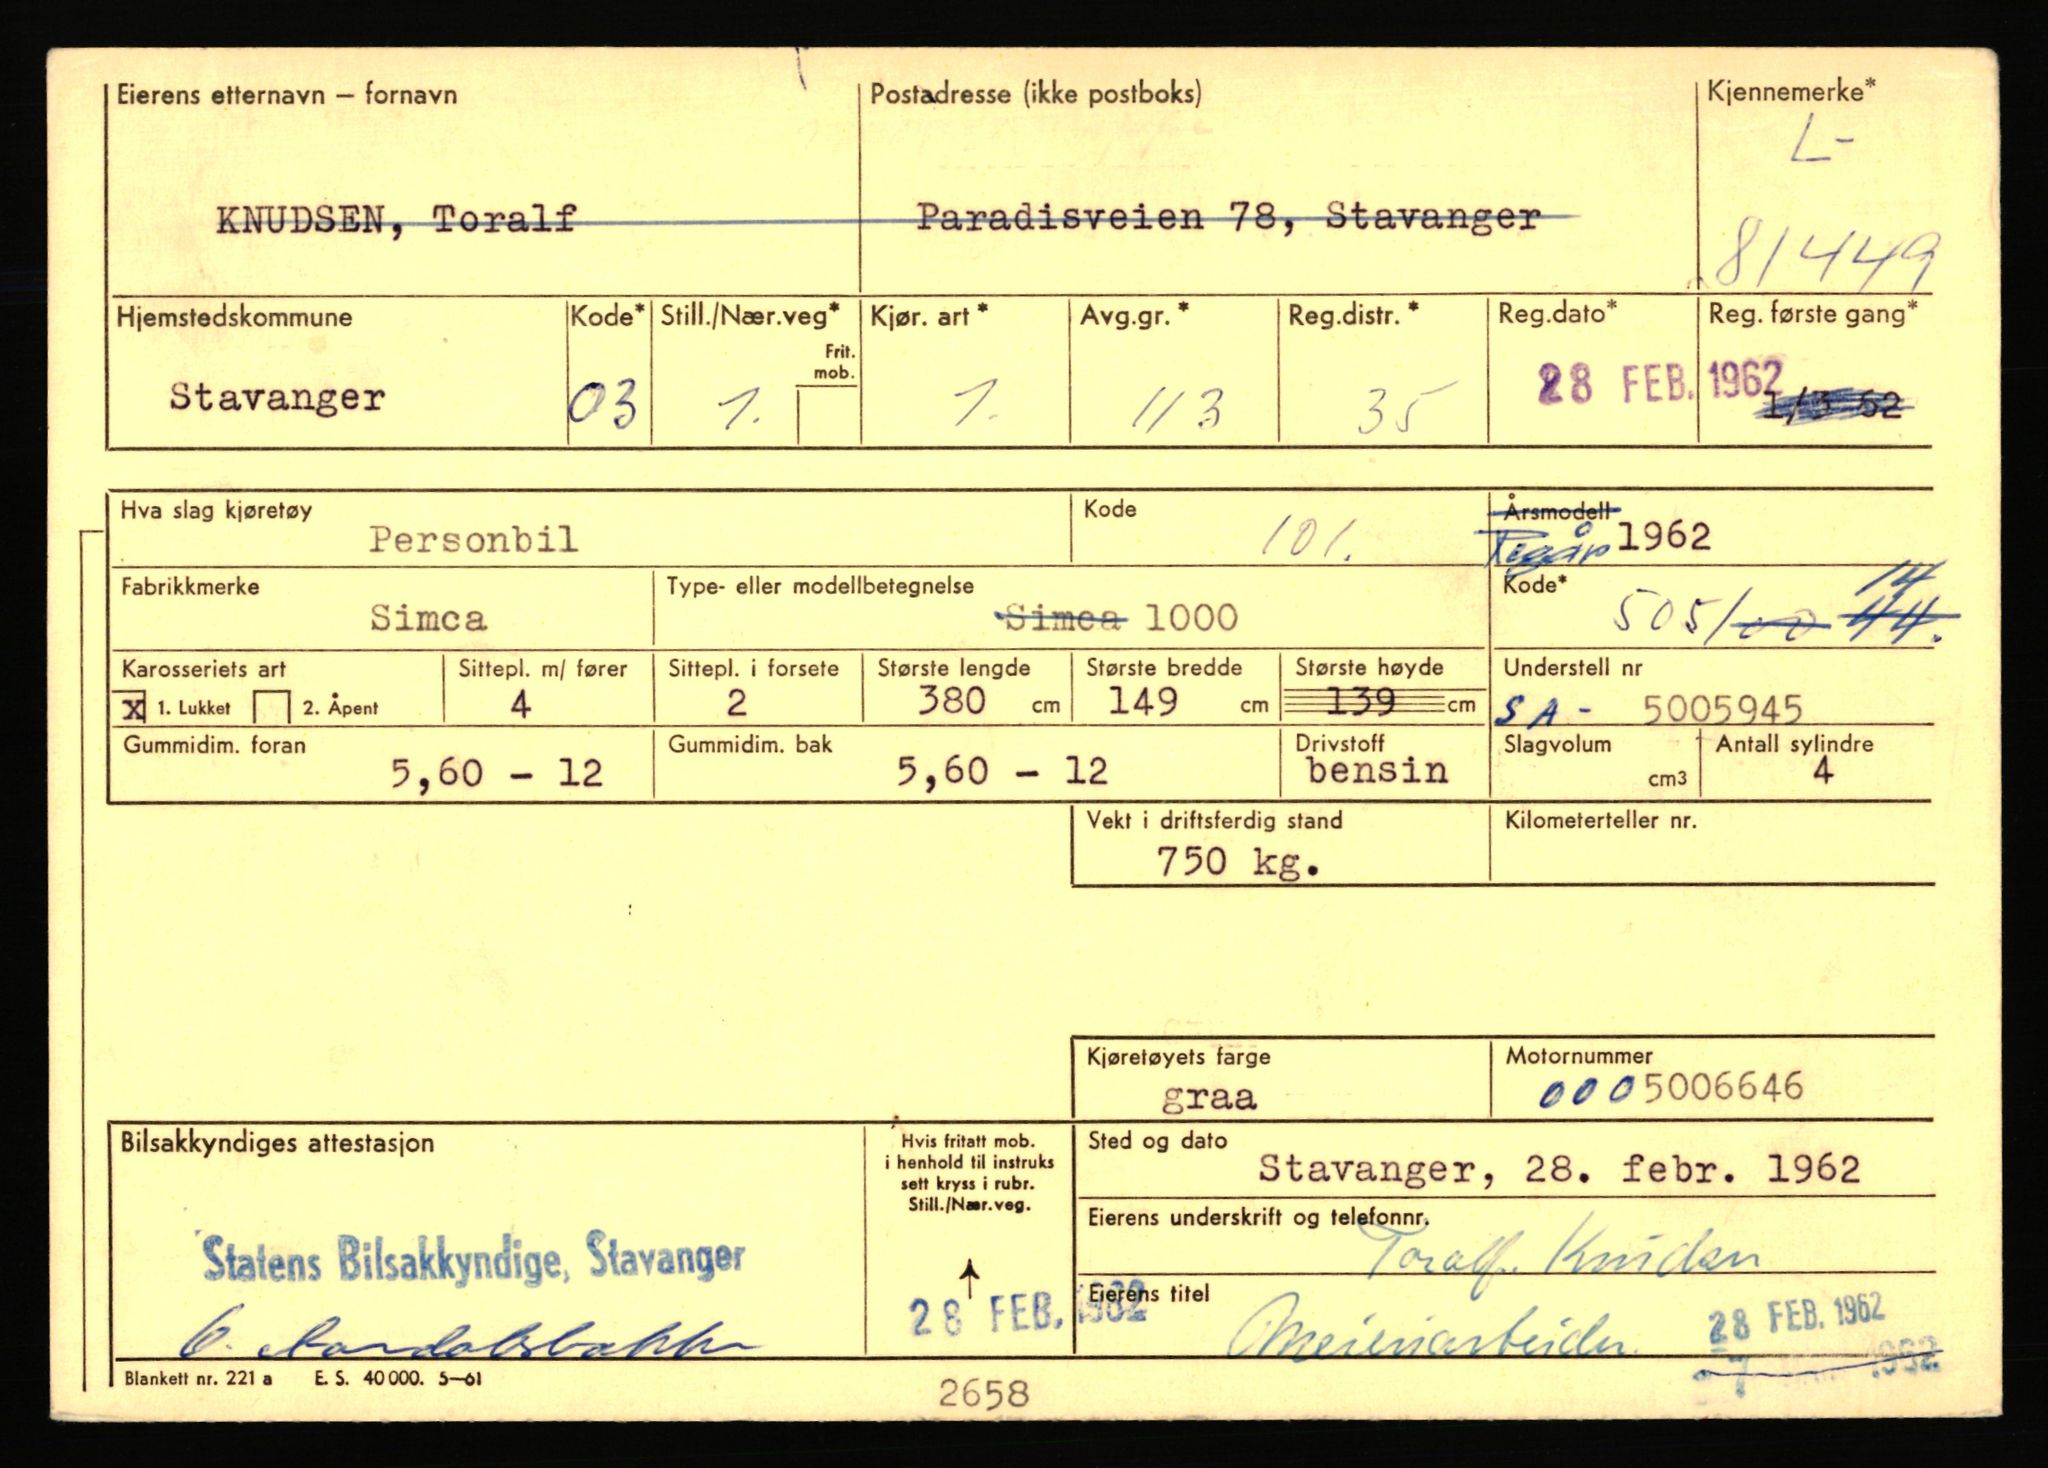 Eierens etternavn – fornavn
Postadresse (ikke postboks)
Kjennemerke*
L-
KNUDSEN, Toralf
Paradisveien 78, Stavanger
81449
Hjemstedskommune
Kode*
Still./Nær.veg*
Kjør. art *
Avg.gr. *
Reg.distr. *
Reg.dato*
Reg. første gang*
Frit. mob.
Stavanger
03
1.
1.
113
35
28 FEB. 1962
1/3 62
Hva slag kjøretøy
Personbil
Kode
101.
Årsmodell
Regår 1962
Fabrikkmerke
Simca
Type- eller modellbetegnelse
Simca 1000
Kode*
14
505/00 44.
Karosseriets art
X 1. Lukket
2. Åpent
Sittepl. m/ fører
4
Sittepl. i forsete
2
Største lengde
380 cm
Største bredde
149 cm
Største høyde
139 cm
Understell nr
SA- 5005945
Gummidim. foran
5,60 – 12
Gummidim. bak
5,60 – 12
Drivstoff
bensin
Slagvolum
cm3
Antall sylindre
4
Vekt i driftsferdig stand
750 kg.
Kilometerteller nr.
Kjøretøyets farge
graa
Motornummer
0005006646
Bilsakkyndiges attestasjon
Statens Bilsakkyndige, Stavanger
Hvis fritatt mob.
i henhold til instruks
sett kryss i rubr.
Still./Nær.veg.
28 FEB. 1962
Sted og dato
Stavanger, 28. febr. 1962
Eierens underskrift og telefonnr.
Toralf Knudsen
Eierens titel
Meieriarbeider
28 FEB. 1962
- 7 1962
Blankett nr. 221 a E. S. 40 000. 5–61
2658